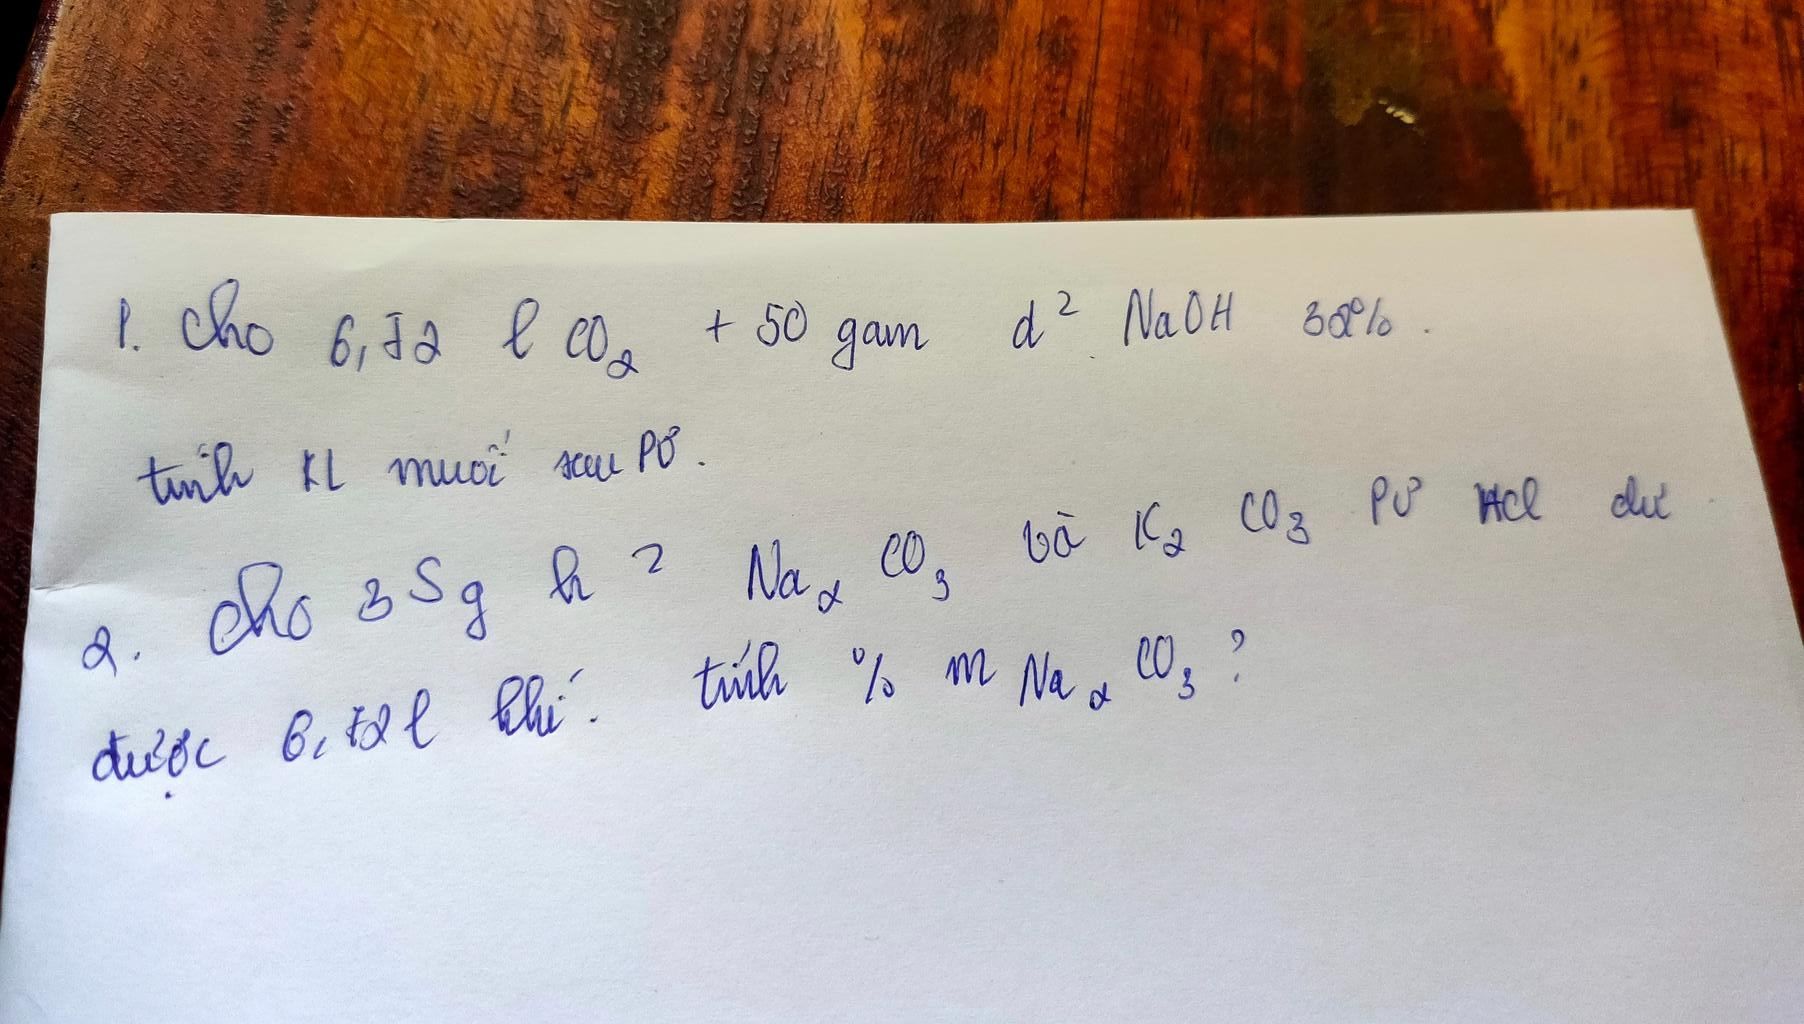 1. Cho 6,72 l CO₂ + 50 gam d² NaOH 32%.
tính KL muối sau PƯ.
2. Cho 35g h² Na₂CO₃ và K₂CO₃ PƯ HCl dư
được 6,72l khí. tính % m Na₂CO₃?